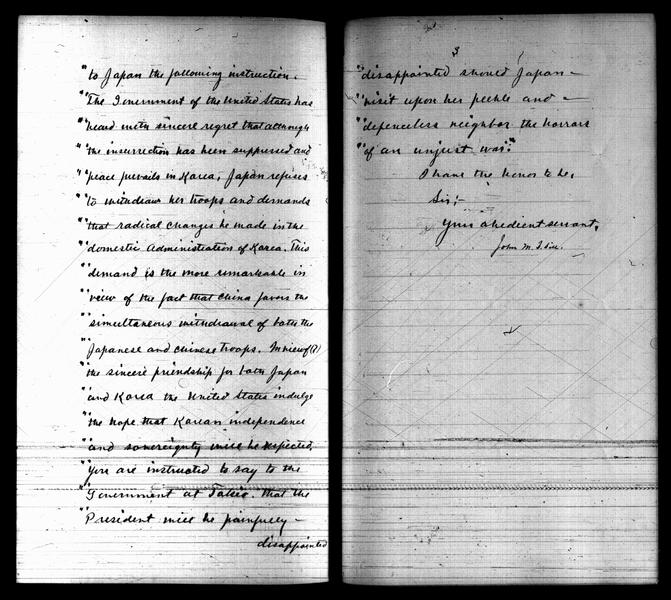 "to Japan the following instruction.
"The Government of the United States has
"heard with sincere regret that although
"the insurrection has been suppressed and
"peace prevails in Korea, Japan refuses
"to withdraw her troops and demands
"that radical changes be made in the
"domestic administration of Korea. This
"demand is the more remarkable in
"view of the fact that China favors the
"simultaneous withdrawal of both the
"Japanese and Chinese troops. In view of (?)
"the sincere friendship for both Japan
"and Korea the United States indulge
"the hope that Korean independence
"and sovereignty will be respected.
"You are instructed to say to the
"Government at Tokio. that the
"President will be painfully –
disappointed
3
"disappointed should Japan –
"visit upon her feeble and –
"defenceless neighbor the horrors
"of an unjust war."
I have the honor to be,
Sir;–
Your obedient servant,
John M. B. Sill.